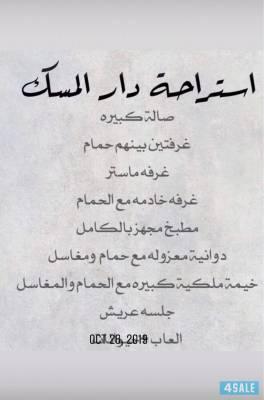 استراحة دار المسك
صالة كبيره
غرفتين بينهم حمام
غرفه ماستر
غرفه خادمه مع الحمام
مطبخ مجهز بالكامل
دوانية معزوله مع حمام ومغاسل
خيمة ملكية كبيره مع الحمام والمغاسل
جلسه عريش
العاب
OCT 28, 2019
4SALE